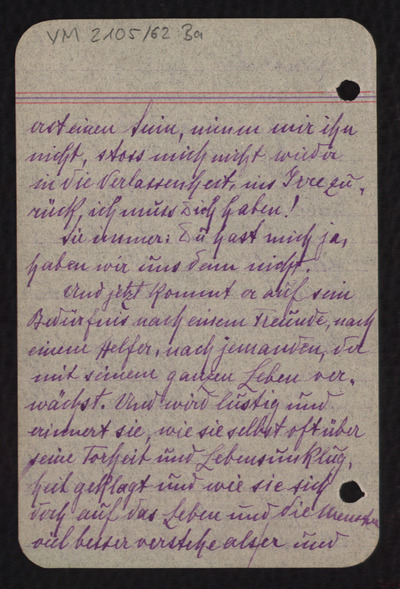 VM 2105/62 Ba
erst einen Sinn, nimm mir ihn
nicht, stoss mich nicht wieder
in die Verlassenheit, ins Irre zu-
rück, ich muss Dich haben!
Sie immer: Du hast mich ja,
haben wir uns denn nicht.
Und jetzt kommt er auf sein
Bedürfnis nach einem Freunde, nach
einem Helfer, nach jemanden, der
mit seinem ganzen Leben ver-
wächst. Und wird lustig und
erinnert sie, wie sie selbst oft über
seine Torheit und Lebensunklug-
heit geklagt und wie sie sich
doch auf das Leben und die Menschen
viel besser verstehe als er und